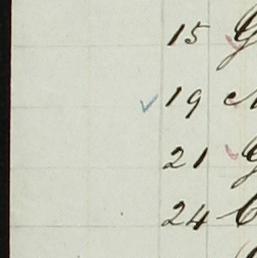 15
19
21
24